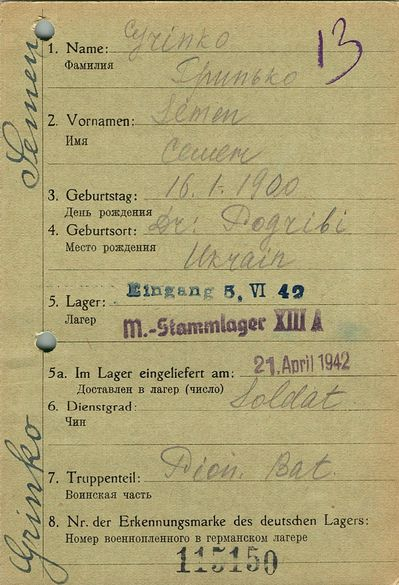 Grinko
13
1. Name:
Фамилия
Гринько
2. Vornamen: Semen
Имя
Семен
3. Geburtstag: 16.1.1900
День рождения
4. Geburtsort: Dr: Pogribi
Место рождения
Ukrain
Eingang 5. VI 42
5. Lager:
Лагер
M.-Stammlager XIII A
21. April 1942
5a. Im Lager eingeliefert am:
Доставлен в лагер (число)
6. Dienstgrad: Soldat
Чин
7. Truppenteil: Pion. Bat.
Воинская часть
8. Nr. der Erkennungsmarke des deutschen Lagers:
Номер военнопленного в германском лагере
115150
Grinko Semen